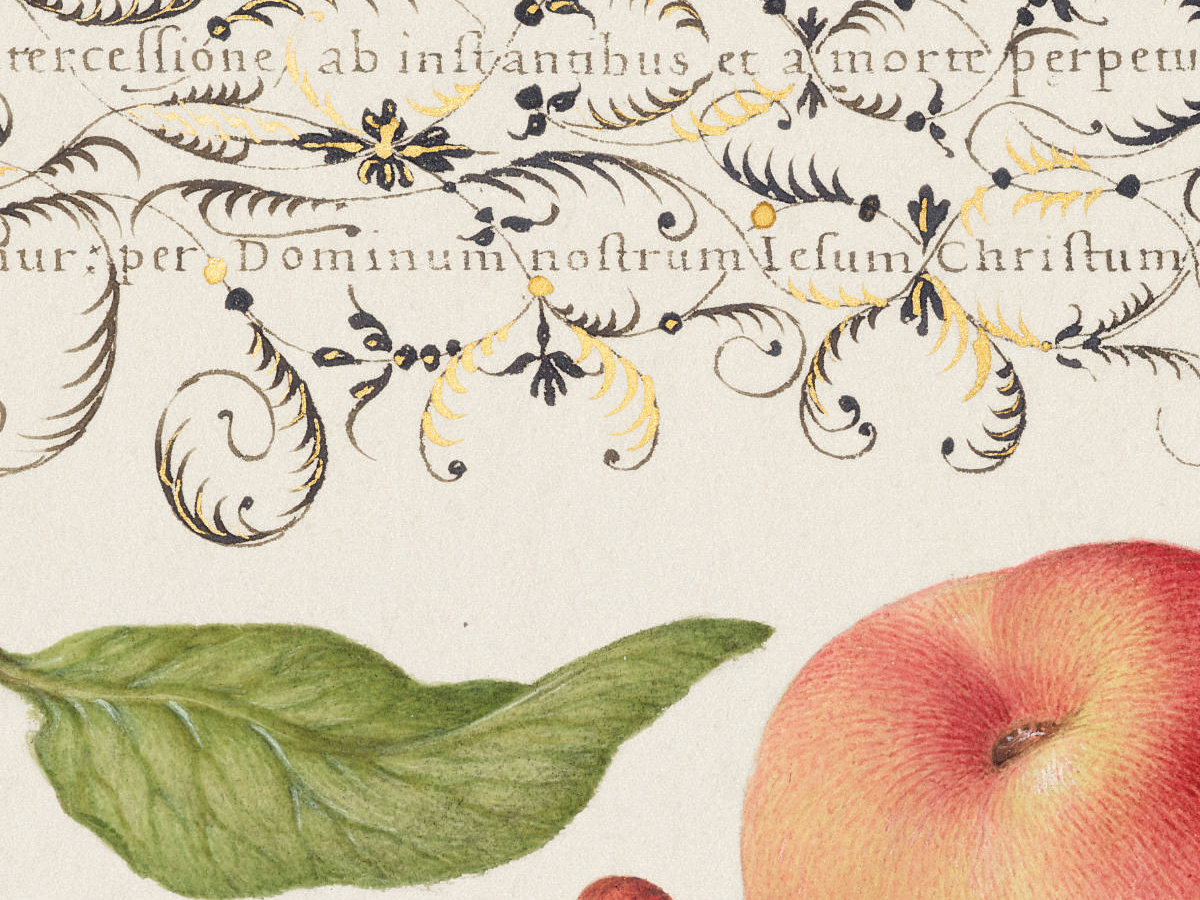 terceſſióne ab inſtantibus et a morte perpetu
nur: per Dominum noſtrum Ieſum Chriſtum